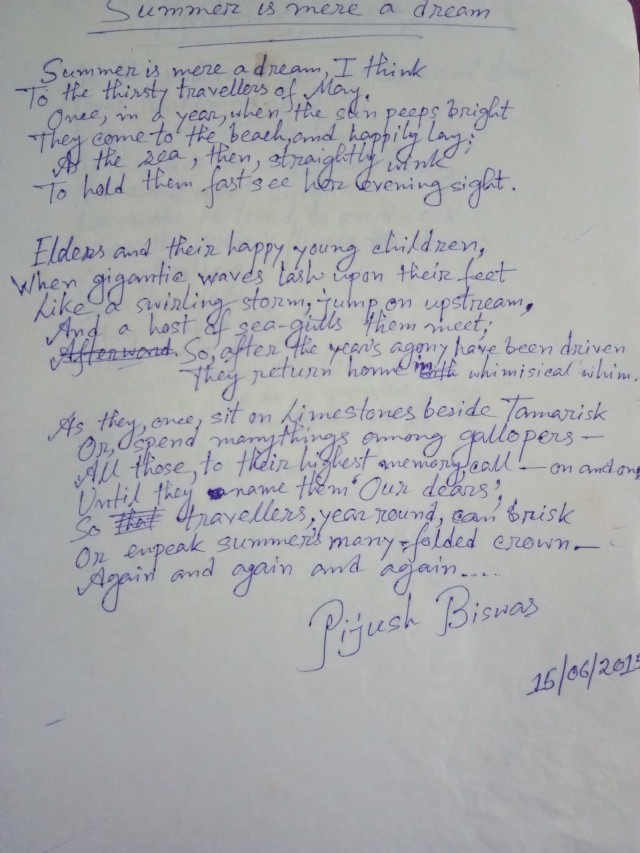 Summer is mere a dream
Summer is mere a dream, I think
To the thirsty travellers of May.
Once, in a year, when the sun peeps bright
They come to the beach, and happily lay;
As the sea, then, straightly wink
To hold them fast see her evening sight.
Elders and their happy young children,
When gigantic waves lash upon their feet
Like a swirling storm, jump on upstream,
And a host of sea-gulls them meet;
Afterward. So, after the year's agony have been driven
They return home in with whimisical whim.
As they, once, sit on Limestones beside Tamarisk
Or, spend manythings among gallopers—
All those, to their highest memory, call — on and on
Until they name them 'Our dears',
So that travellers, year round, can brisk
Or enpeak summer's many-folded crown—
Again and again and again....
Pijush Biswas
15/06/2015